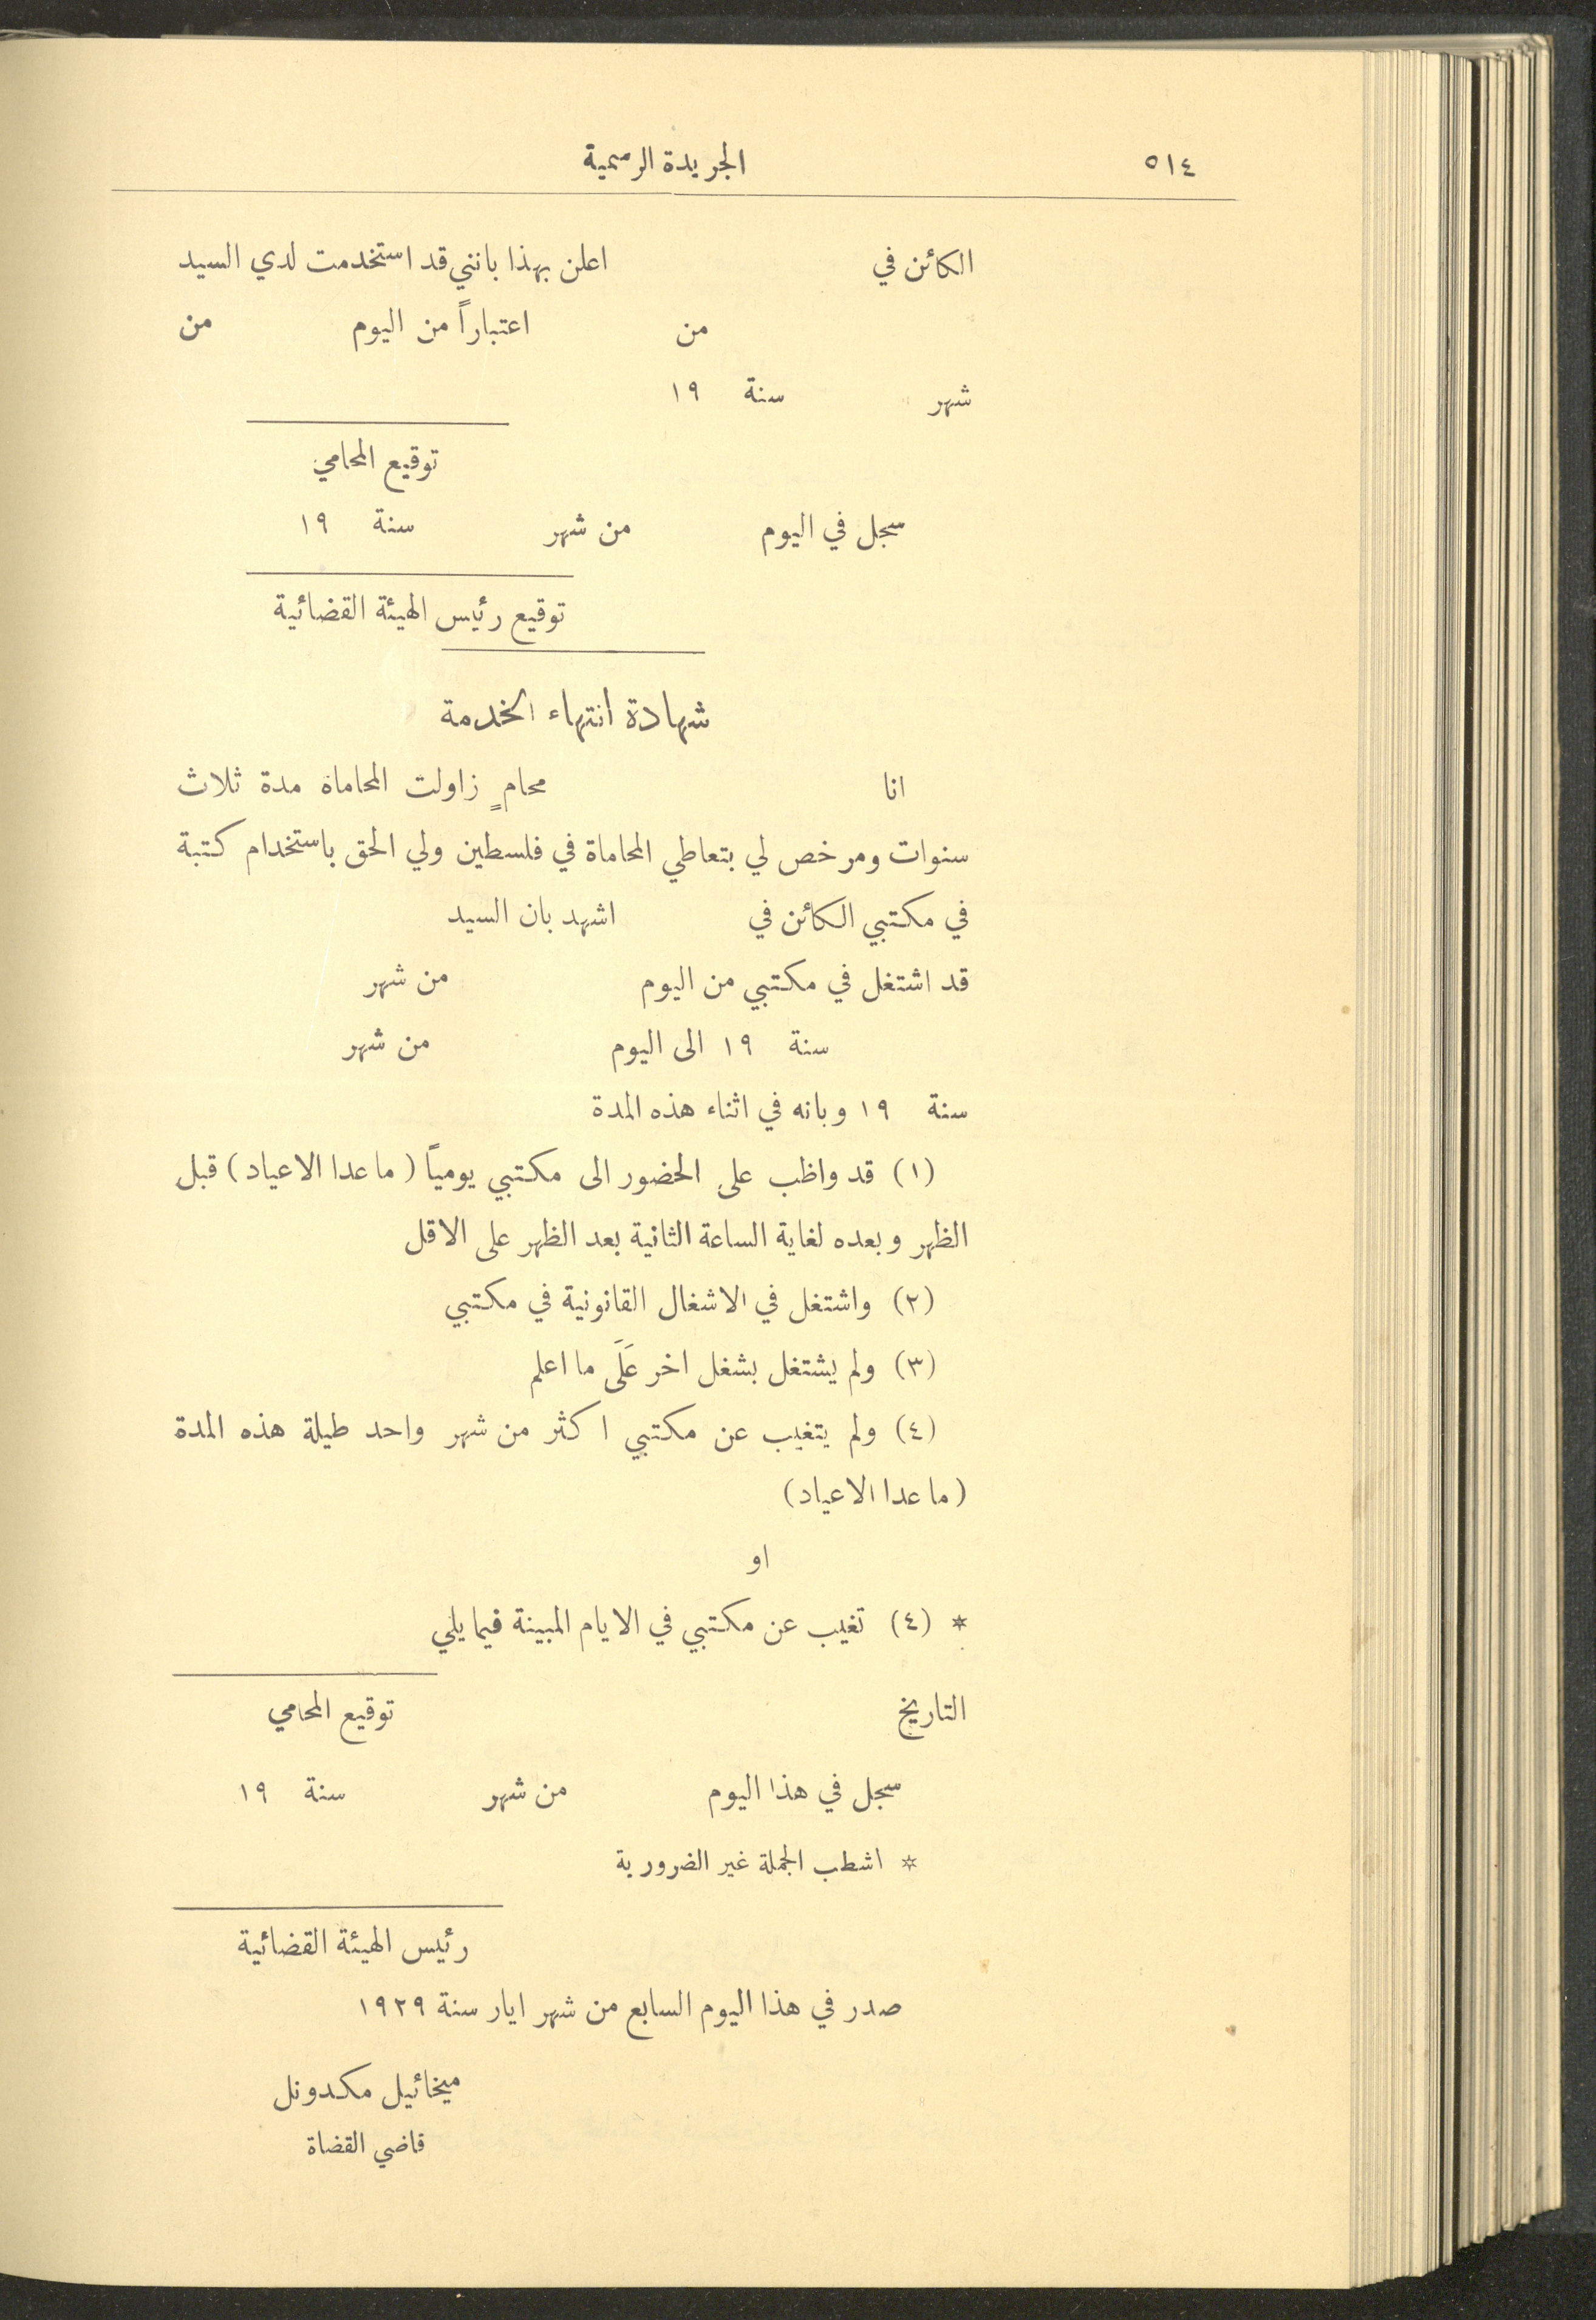 ٥١٤ الجريدة الرسمية
الكائن في اعلن بهذا بانني قد استخدمت لدي السيد
من اعتباراً من اليوم من
شهر سنة ١٩
توقيع المحامي
سجل في اليوم من شهر سنة ١٩
توقيع رئيس الهيئة القضائية
شهادة انتهاء الخدمة
انا محامٍ زاولت المحاماة مدة ثلاث
سنوات ومرخص لي بتعاطي المحاماة في فلسطين ولي الحق باستخدام كتبة
في مكتبي الكائن في اشهد بان السيد
قد اشتغل في مكتبي من اليوم من شهر
سنة ١٩ الى اليوم من شهر
سنة ١٩ وبانه في اثناء هذه المدة
(١) قد واظب على الحضور الى مكتبي يومياً (ما عدا الاعياد) قبل
الظهر وبعده لغاية الساعة الثانية بعد الظهر على الاقل
(٢) واشتغل في الاشغال القانونية في مكتبي
(٣) ولم يشتغل بشغل اخر عَلَى ما اعلم
(٤) ولم يتغيب عن مكتبي اكثر من شهر واحد طيلة هذه المدة
(ما عدا الاعياد)
او
* (٤) تغيب عن مكتبي في الايام المبينة فيما يلي
التاريخ توقيع المحامي
سجل في هذا اليوم من شهر سنة ١٩
* اشطب الجملة غير الضرورية
رئيس الهيئة القضائية
صدر في هذا اليوم السابع من شهر ايار سنة ١٩٢٩
ميخائيل مكدونل
قاضي القضاة